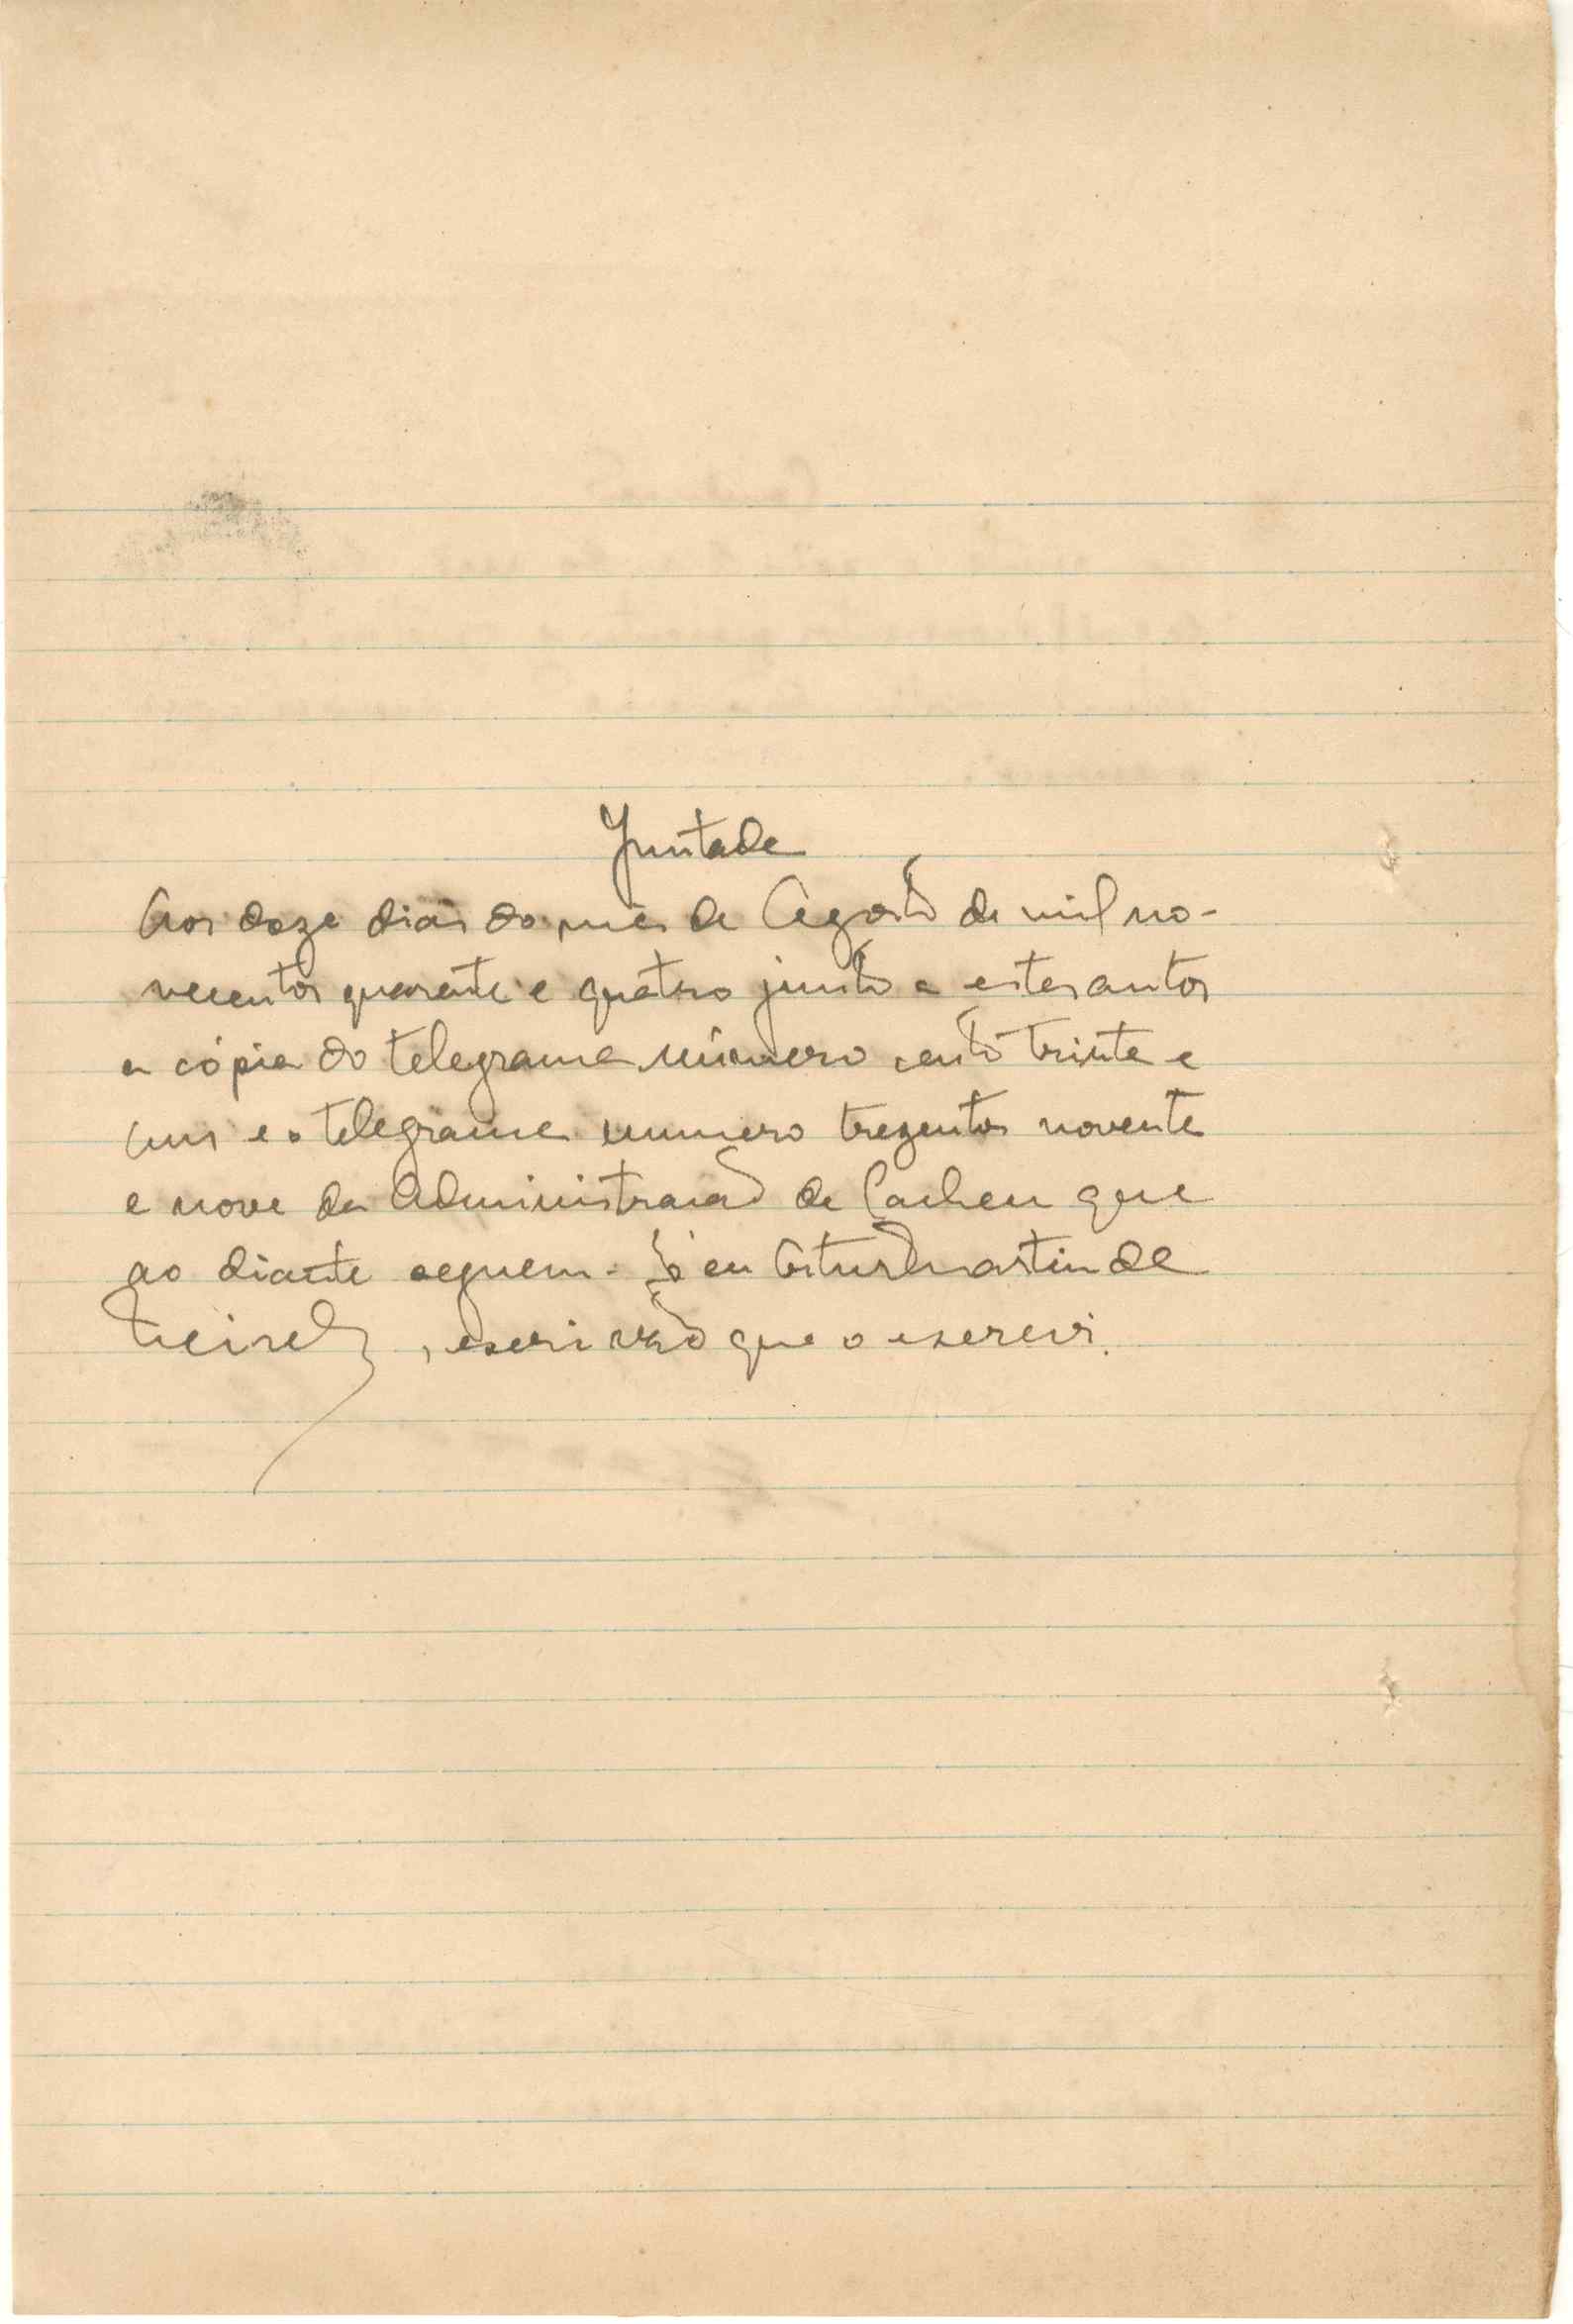 Juntada
Aos doze dias do mês de Agosto de mil no-
vecentos quarenta e quatro junto a estes autos
a cópia do telegrama número cento trinta e
um e o telegrama numero trezentos noventa
e nove da Administração de Cacheu que
ao diante seguem. E eu Artur Martin de
Meireles, escrivão que o escrevi.